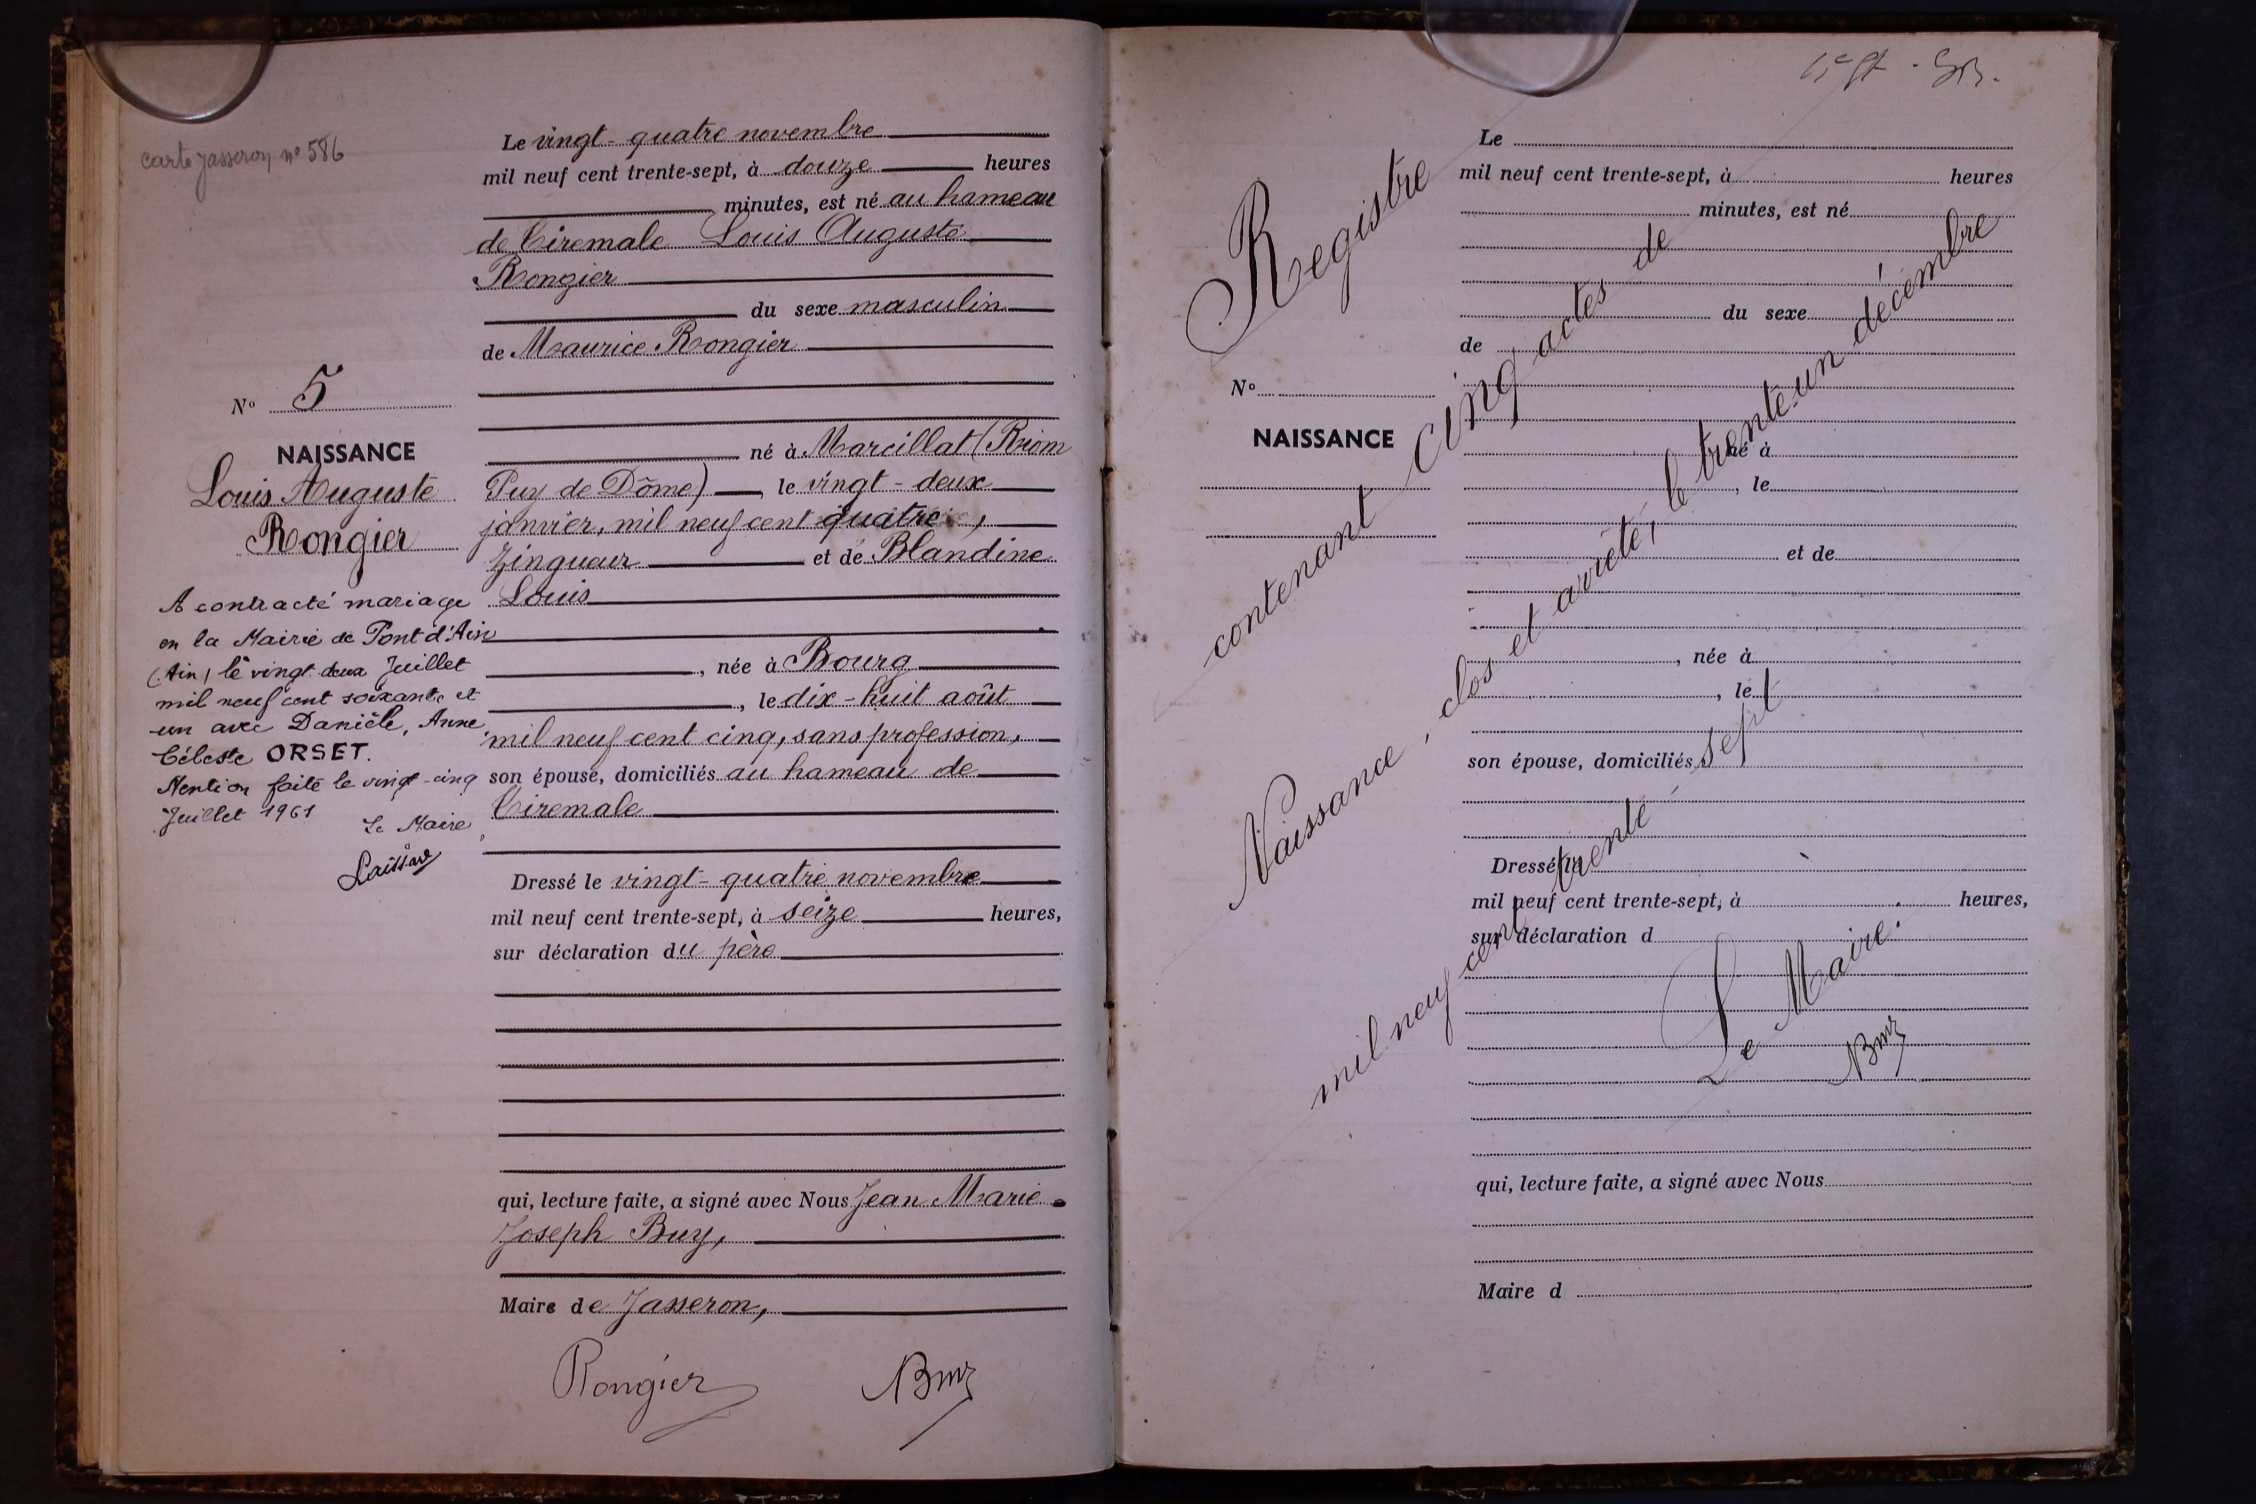 carte Jasseron n° 586
Le vingt-quatre novembre
mil neuf cent trente-sept, à douze heures
minutes, est né au hameau
de Tiremale Louis Auguste
Rongier
du sexe masculin
de Maurice Rongier
né à Marcillat (Riom
Puy de Dôme), le vingt-deux
janvier, mil neuf cent quatre,
zingueur et de Blandine
Louis
, née à Bourg
, le dix-huit août
mil neuf cent cinq, sans profession,
son épouse, domiciliés au hameau de
Tiremale
Dressé le vingt-quatre novembre
mil neuf cent trente-sept, à seize heures,
sur déclaration du père
qui, lecture faite, a signé avec Nous Jean Marie
Joseph Buy,
Maire de Jasseron,
Rongier
Buy
N° 5
NAISSANCE
Louis Auguste
Rongier
A contracté mariage
en la Mairie de Pont d'Ain
(Ain) le vingt deux Juillet
mil neuf cent soixante et
un avec Danièle, Anne,
Céleste ORSET.
Mention faite le vingt-cinq
Juillet 1961
Le Maire,
Le
mil neuf cent trente-sept, à heures
minutes, est né
du sexe
de
né à
, le
et de
, née à
, le
son épouse, domiciliés
Dressé le
mil neuf cent trente-sept, à heures,
sur déclaration d
qui, lecture faite, a signé avec Nous
Maire d
N°
NAISSANCE
Registre
contenant cinq actes de
Naissance, clos et arrêté, le trente-un décembre
mil neuf cent trente-sept
Le Maire.
Buy